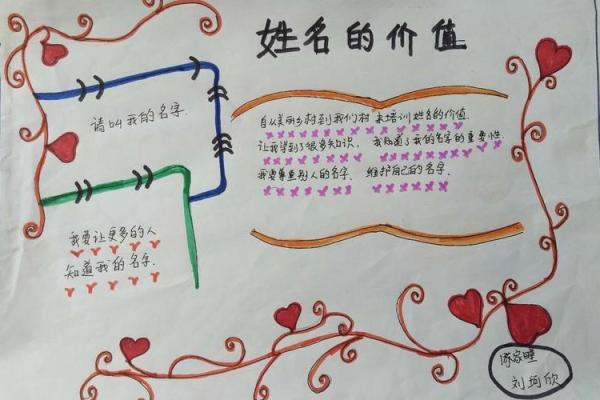 姓名的价值
请叫我的名字.
自从美丽乡村到我们村来培训姓名的价值.
让我学到了很多知识， 我知道了我的名字的重要性
我要尊重别人的名字. 维护自己的名字.
我要让更多的人
知道我的名字.
刘珂欣